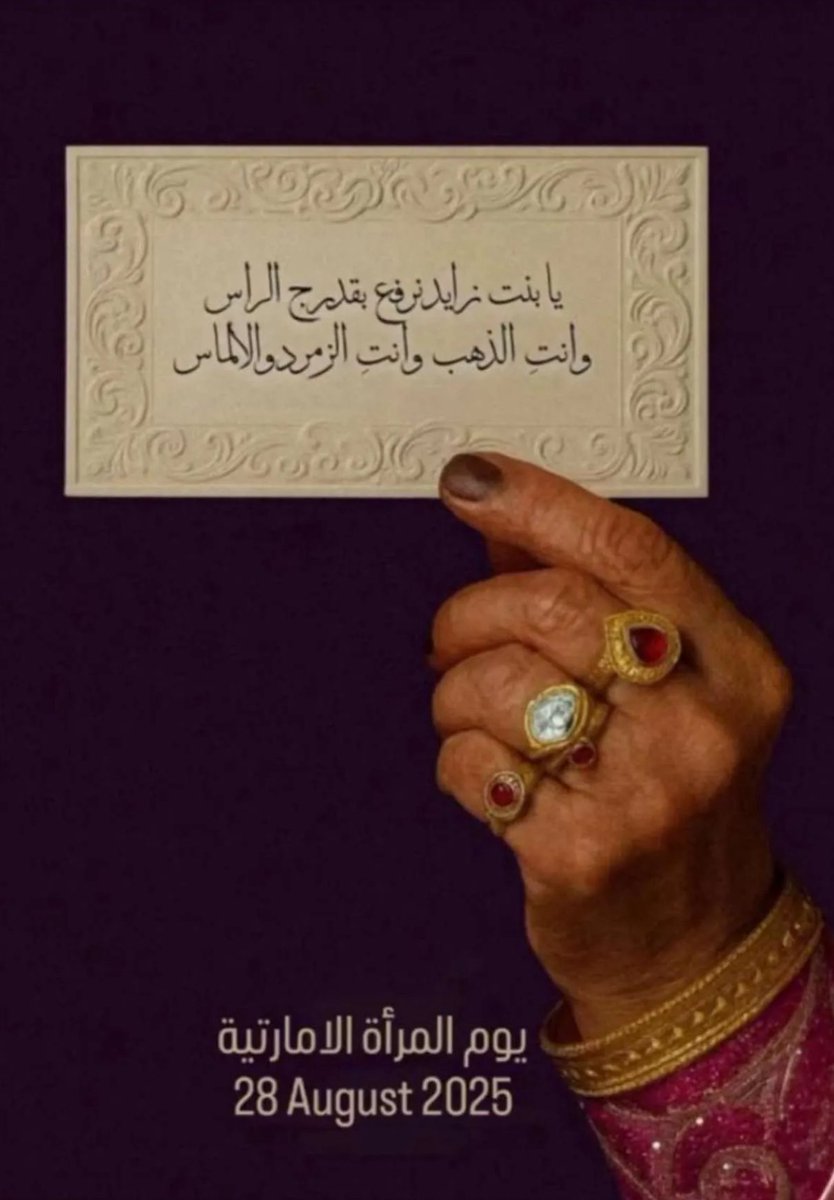 يا بنت زايد نرفع بقدرج الراس
وانتِ الذهب وانتِ الزمرد والالماس
يوم المرأة الامارتية
28 August 2025